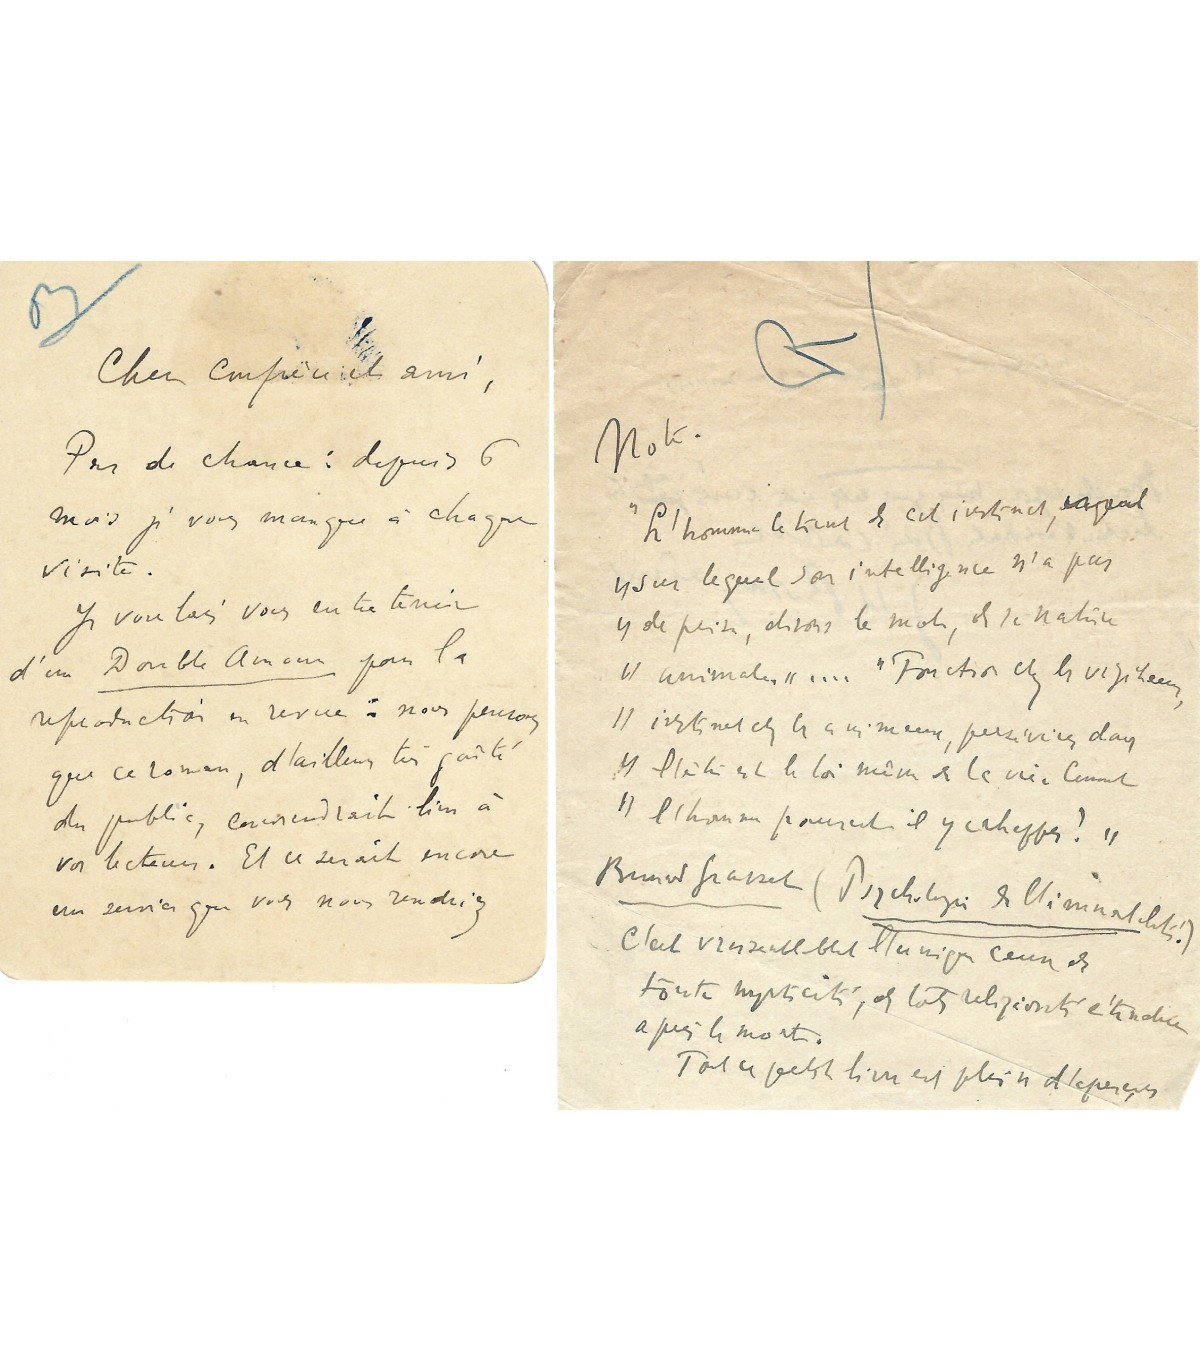 Cher confrère et ami,
Pas de chance : depuis 6
mois je vous manque à chaque
visite.
Je voulais vous entretenir
d'un Double Amour pour la
reproduction en revue : nous pensons
que ce roman, d'ailleurs très goûté
du public, conviendrait bien à
vos lecteurs. Et ce serait encore
un service que vous nous rendriez
Note.
"L'homme le tient de cet instinct,
" sur lequel son intelligence n'a pas
" de prise, disons le mot, de sa nature
" animale" .... "Fonction chez les végétaux,
" instinct chez les animaux, persévérer dans
" l'être est la loi même de la vie. Comment
" l'homme pourrait-il y échapper ? "
Bernard Grasset (Psychologie de l'immortalité)
C'est vraisemblablement l'unique cause de
toute mysticité, de toute religiosité étendue
après la mort.
Tout ce petit livre est plein d'aperçus